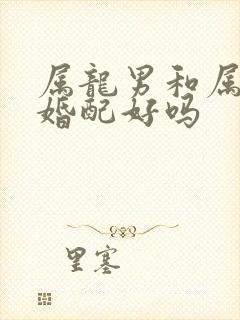 属龍男和属
婚配好吗
里塞